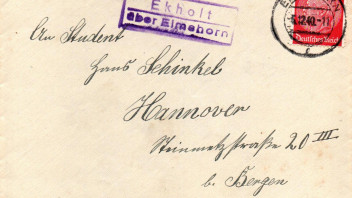 Ekholt
über Elmshorn
12.40.-11
Deutsches Reich
An Student
Hans Schinkel
Hannover
Steinmetzstraße 20 III
b. Bergen